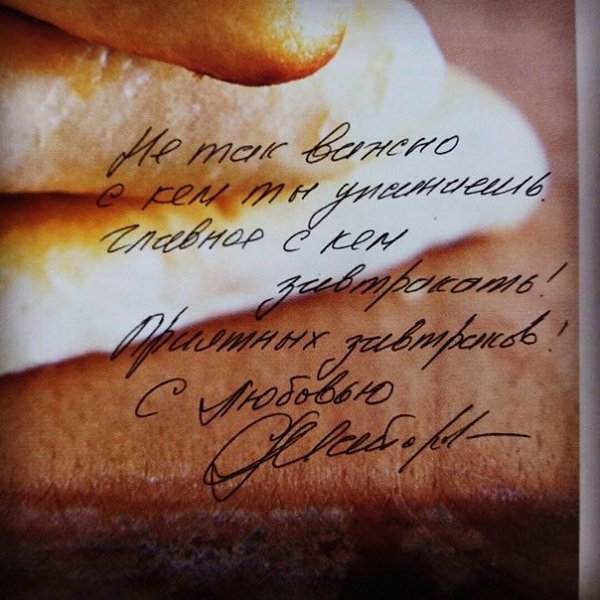 Не так важно
с кем ты ужинаешь.
Главное с кем
завтракать!
Приятных завтраков!
С любовью